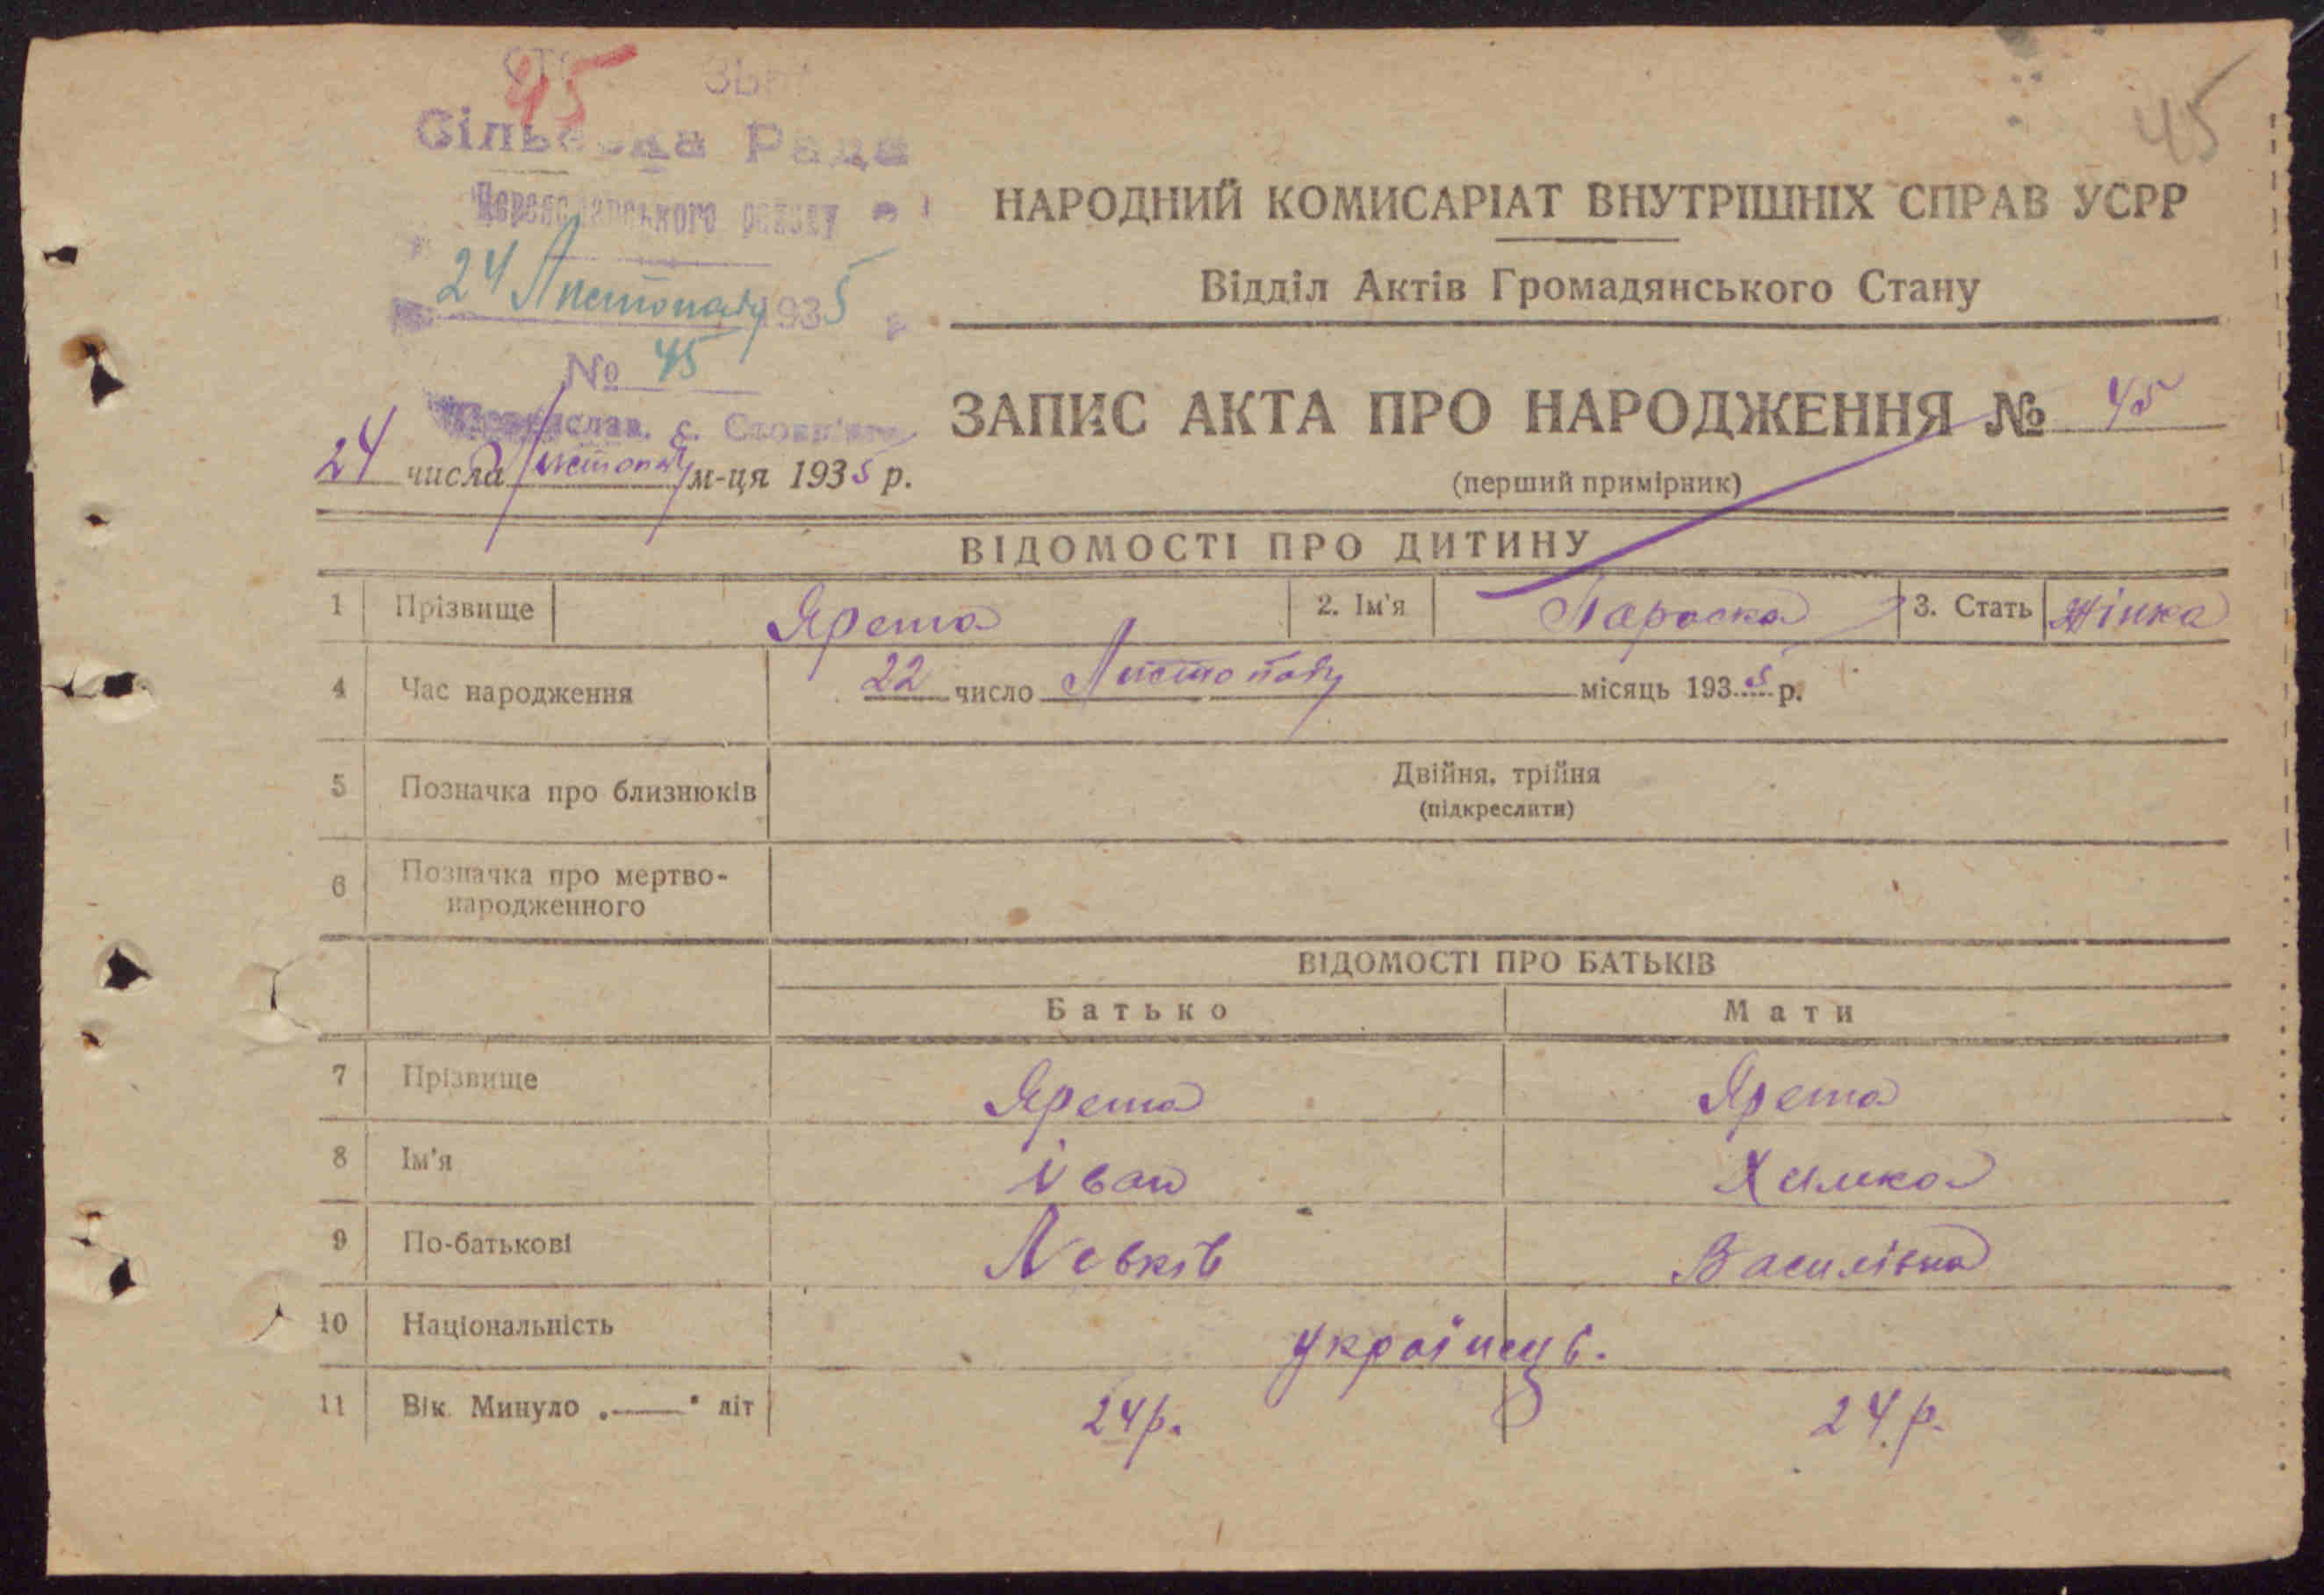 45
45
Сільська Рада
Переяславського району
24 Листопаду 1935
№ 45
НАРОДНИЙ КОМИСАРІАТ ВНУТРІШНІХ СПРАВ УСРР
Відділ Актів Громадянського Стану
ЗАПИС АКТА ПРО НАРОДЖЕННЯ № 45
(перший примірник)
24 числа Листопаду м-ця 1935 р.
ВІДОМОСТІ ПРО ДИТИНУ
1 Прізвище Ярема 2. Ім'я Параска 3. Стать Жінка
4 Час народження 22 число Листопаду місяць 1935 р.
5 Позначка про близнюків Двійня, трійня
(підкреслити)
6 Позначка про мертво-
народженного
ВІДОМОСТІ ПРО БАТЬКІВ
Батько Мати
7 Прізвище Ярема Ярема
8 Ім'я Іван Химка
9 По-батькові Левків Василівна
10 Національність українець.
11 Вік. Минуло „—" літ 24 р. 24 р.